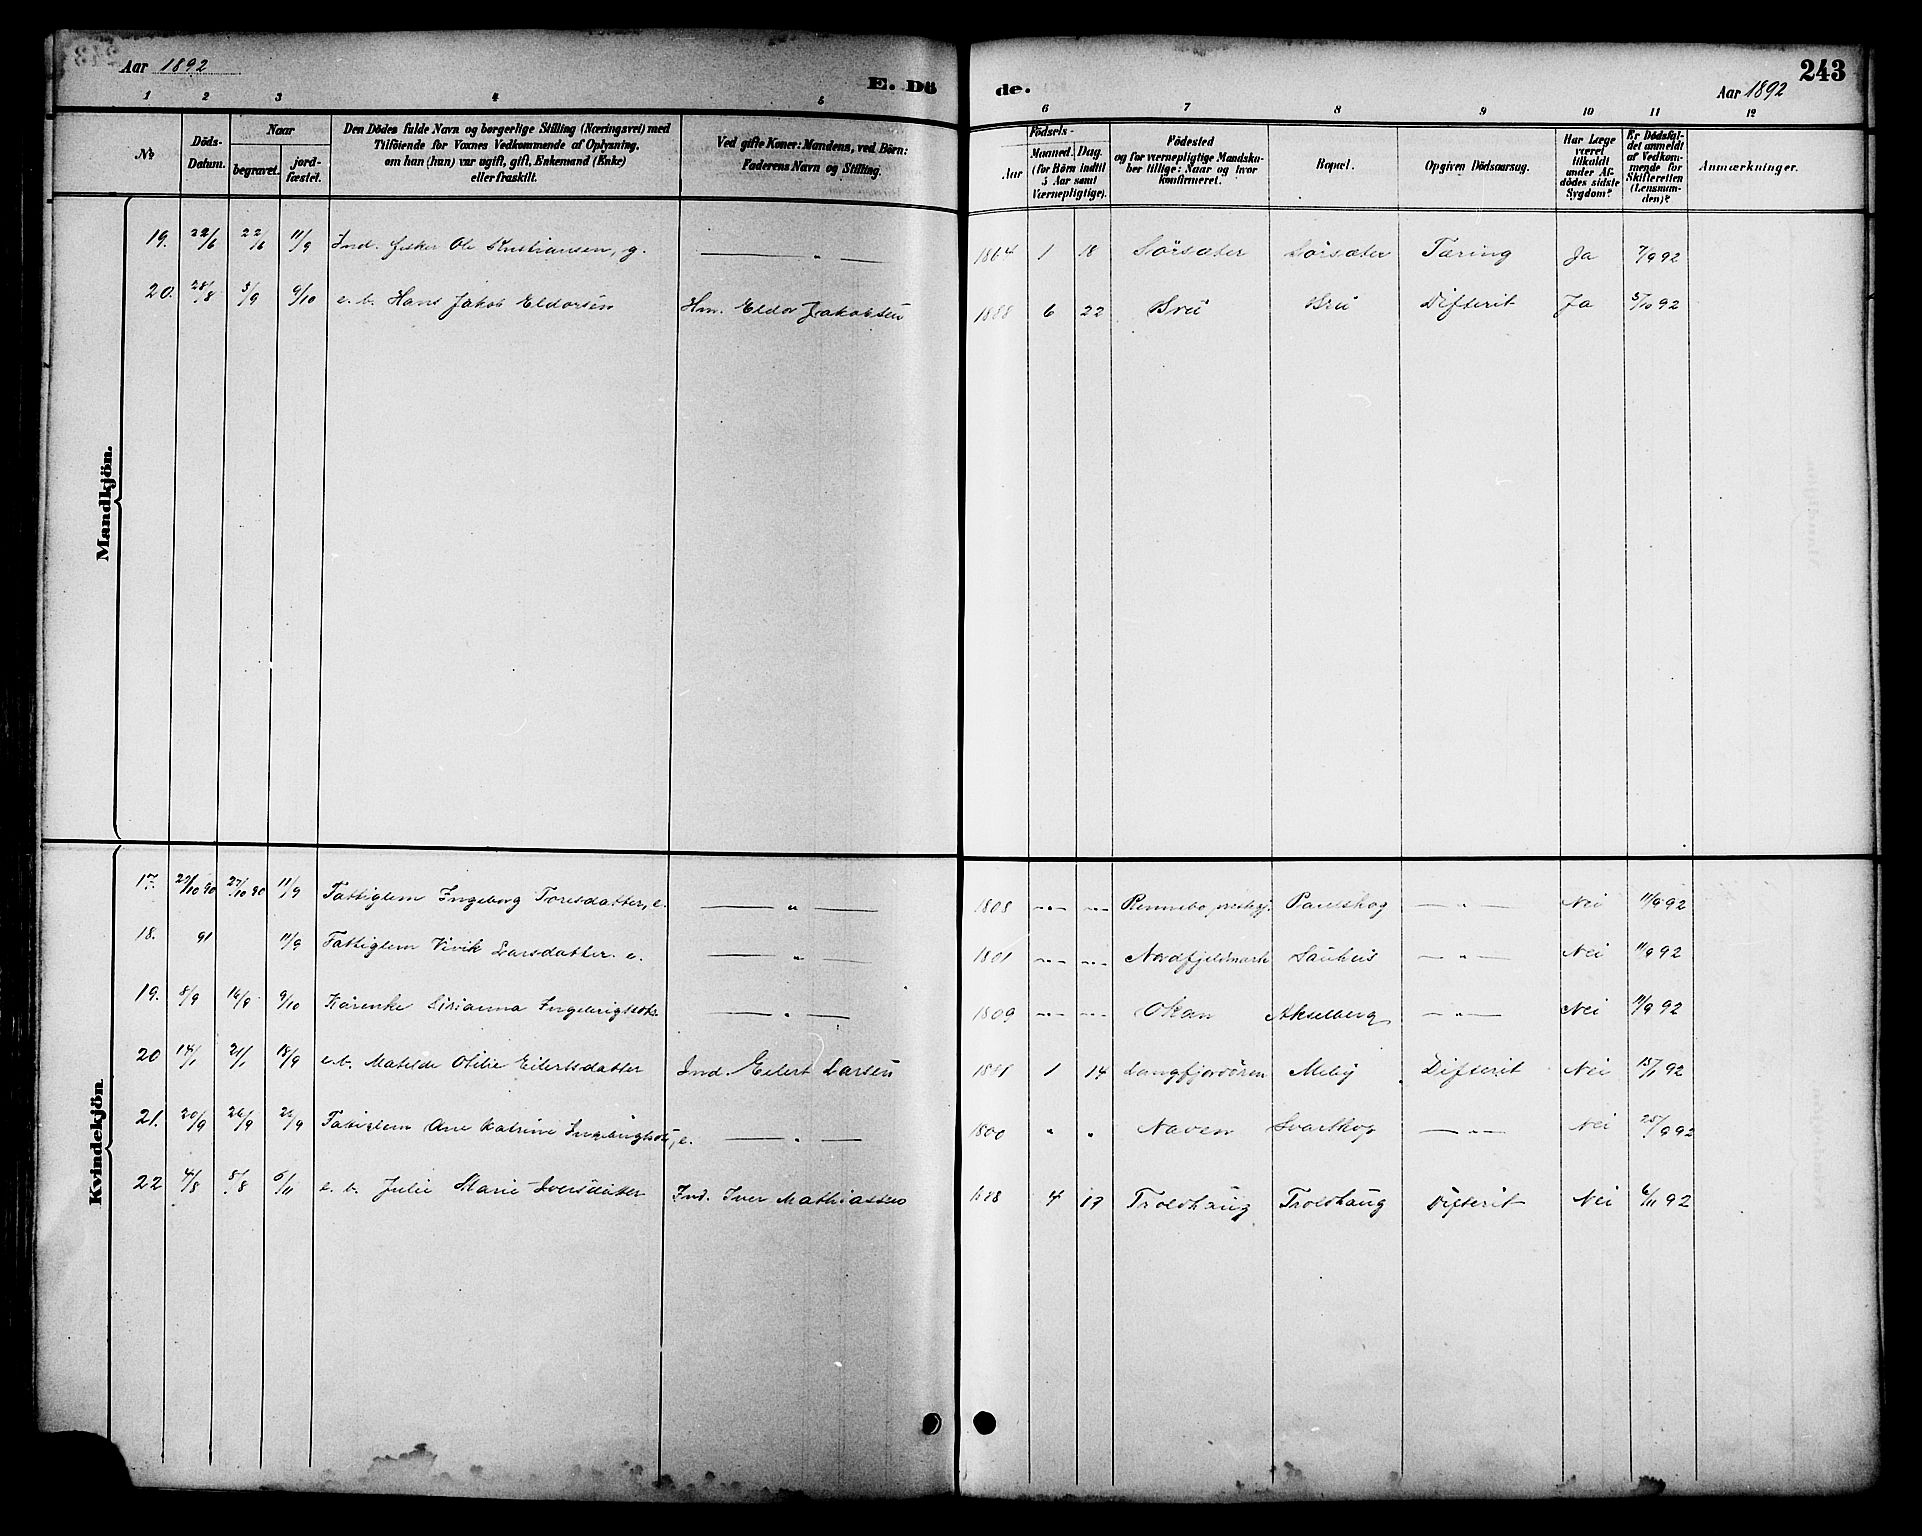 Aar 1892
E. Dö
de.
243
Aar 1892
1 2 3 4 5 6 7 8 9 10 11 12
No
Döds-Datum.
Naar
begravet.
jord-fæstet.
Den Dödes fulde Navn og borgerlige Stilling (Næringsvei) med
Tilföiende for Voxnes Vedkommende af Oplysning,
om han (hun) var ugift, gift, Enkemand (Enke)
eller fraskilt.
Ved gifte Koner: Mandens, ved Börn:
Faderens Navn og Stilling.
Födsels-
Aar
Maaned. Dag.
(for Börn indtil
5 Aar samt
Værnepligtige).
Födested
og for værnepligtige Mandska-
ber tillige: Naar og hvor
konfirmeret.
Bopæl.
Opgiven Dödsaarsag.
Har Læge
været
tilkaldt
under Af-
dödes sidste
Sygdom?
Er Dödsfal-
det anmeldt
af Vedkom-
mende for
Skifteretten
(Lensman-
den)?
Anmærkninger.
Mandkjön.
19. 22/6 22/6 11/9 Ind. fisker Ole Kristiansen, g. — „ — 1864 1 18 Sörsæter Sörsæter Tæring Ja 7/9 92
20. 28/8 3/9 9/10 e. b. Hans Jakob Eldorsen Hm. Eldor Jakobsen 1888 6 22 Brü Brü Difterit Ja 3/10 92
Kvindekjön
17. 27/10 90 11/9 Fattiglem Ingeborg Toresdatter, e. — „ — 1808 Rennebo prestegj. — „ — Nei 11/9 92
18. 91 11/9 Fattiglem Vivik Larsdatter. e. — „ — 1801 Nordfjeldmark — „ — Nei 11/9 92
19. 8/9 16/9 9/10 Karenke Ingebrigtsdtr — „ — 1809 Okan Akselberg — „ — Nei 11/9 92
20 14/1 21/1 18/9 e. b. Matelde Otilie Eilertsdatter Ind. Eilert Larsen 1 14 Langfjordören Meby Difterit Nei 15/1 92
21. 20/9 24/9 Fattiglem Ane Katrine e. — „ — 1800 „ „ Naven Svarthop — „ — Nei 25/9 92
22 4/8 5/8 6/11 e. b. Julie Marie Iversdatter Ind. Iver Mathiassen 1888 4 17 Troldhaug Troldhaug Difterit Nei 6/11 92